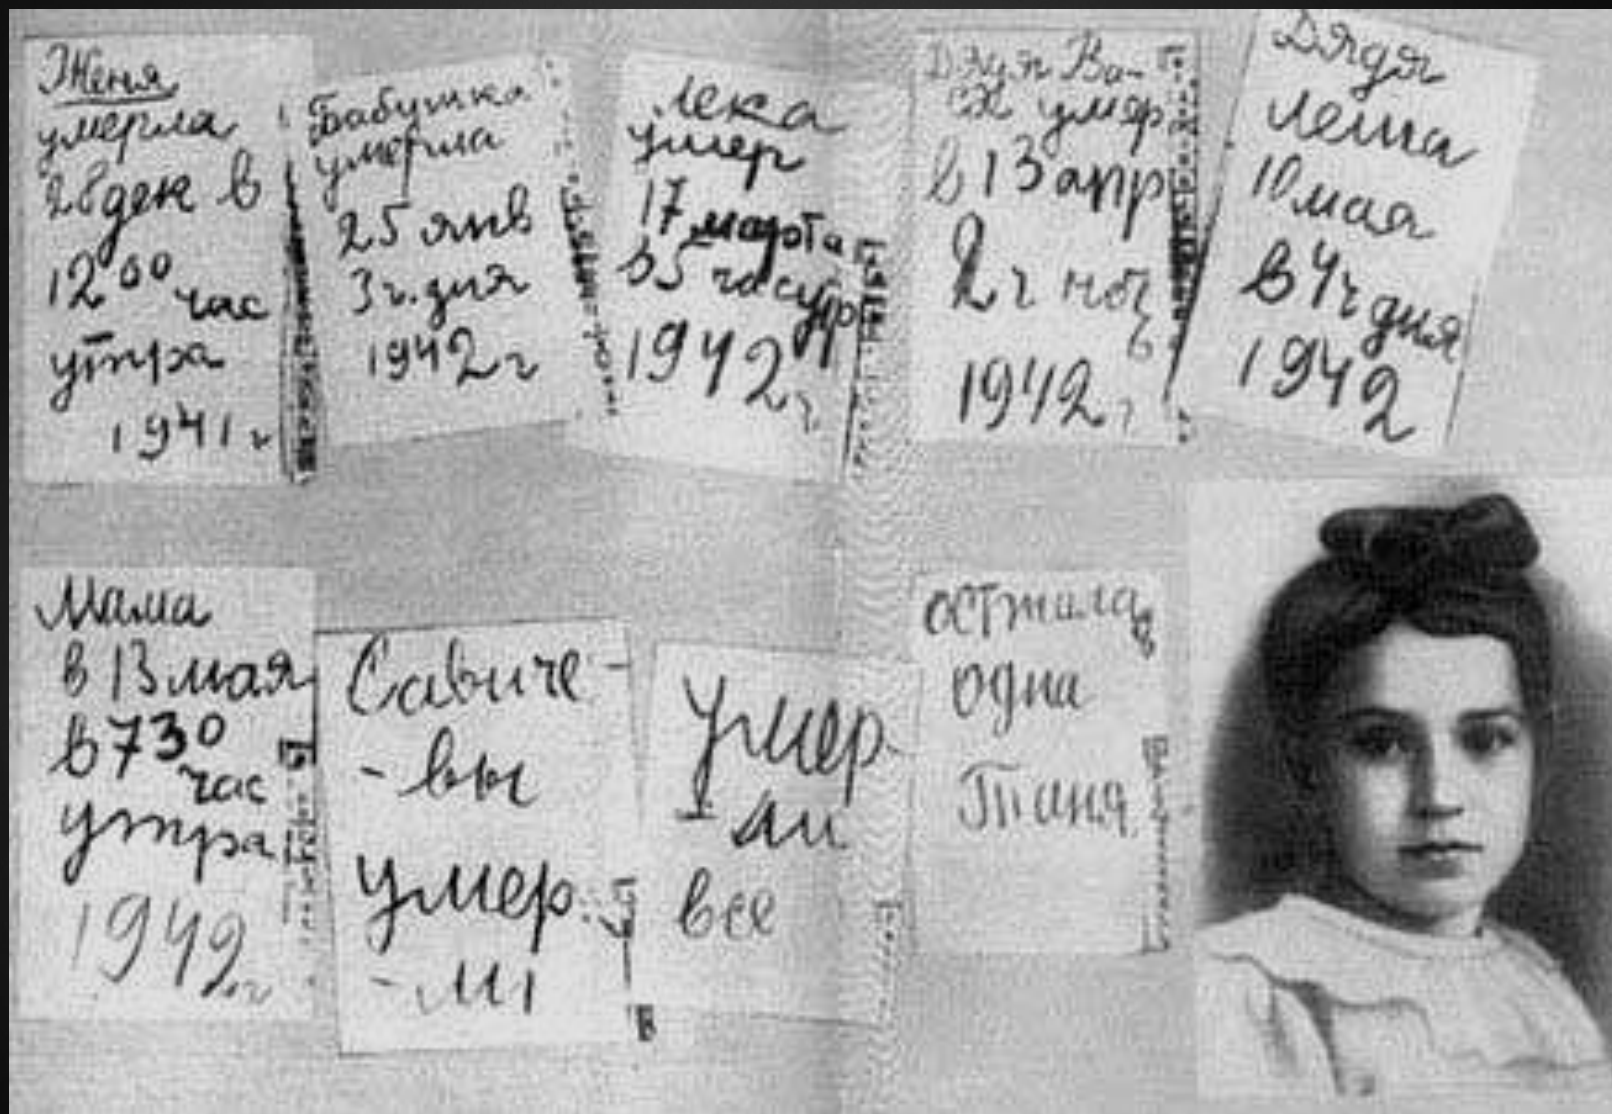 Женя
умерла
28 дек в
12 00 час
утра
1941 г
Бабушка
умерла
25 янв
3 ч. дня
1942 г
Лека
умер
17 марта
в 5 час утр
1942 г.
Дядя Ва-
ся умер
в 13 апр
2 ч ноч
1942 г
Дядя
Леша
10 мая
в 4 ч дня
1942
Мама
в 13 мая
в 7 30
час
утра
1942 г
Савиче-
-вы
умер
-ли
Умер
ли
все
осталась
одна
Таня